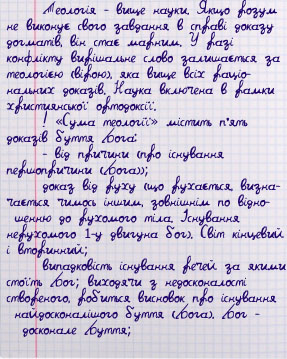 Теологія - вище науки. Якщо розум
не виконує свого завдання в справі доказу
догматів, він стає марним. У разі
конфлікту вирішальне слово залишається за
теологією (вірою), яка вище всіх раціо-
нальних доказів. Наука включена в рамки
християнської ортодоксії.
! «Сума теології» містить п'ять
доказів буття Бога:
- від причини (про існування
першопричини (Бога));
доказ від руху (що рухається, визна-
чається чимось іншим, зовнішнім по відно-
шенню до рухомого тіла. Існування
нерухомого 1-у двигуна бог). Світ кінцевий
і вторинний;
випадковість існування речей за якими
стоїть Бог; виходячи з недосконалості
створеного, робиться висновок про існування
найдосконалішого буття (Бога). Бог -
досконале буття;